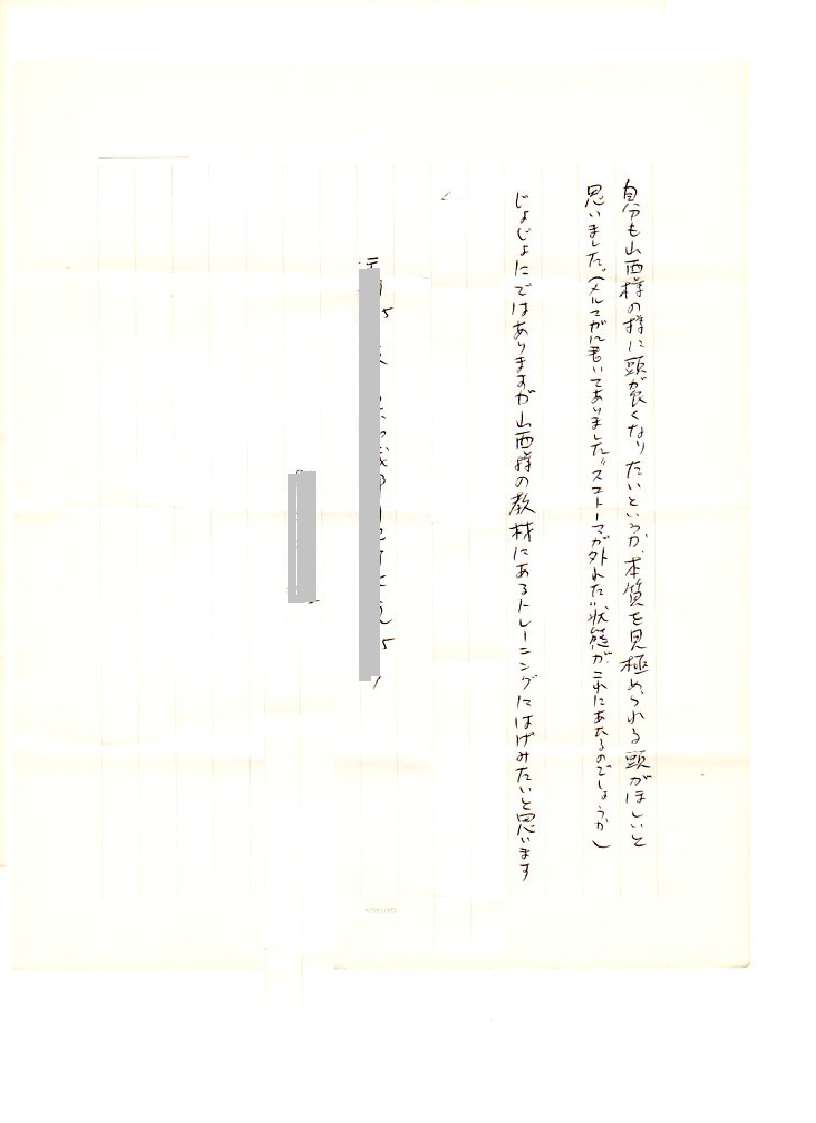 自分も山西様の様に頭が良くなりたいというか、本質を見極められる頭がほしいと
思いました。(メルマガに書いてありました"スコトーマが外れた"状態が、これにあたるのでしょうか)
じょじょにではありますが山西様の教材にあるトレーニングにはげみたいと思います
KOKUYO